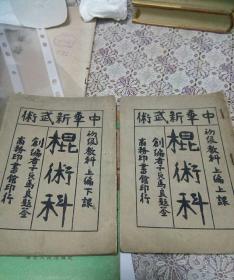 中華新武術
初級教科 上編上課
棍術科
創編者子貞馬良題簽
商務印書館印行
中華新武術
初級教科 上編下課
棍術科
創編者子貞馬良題簽
商務印書館印行